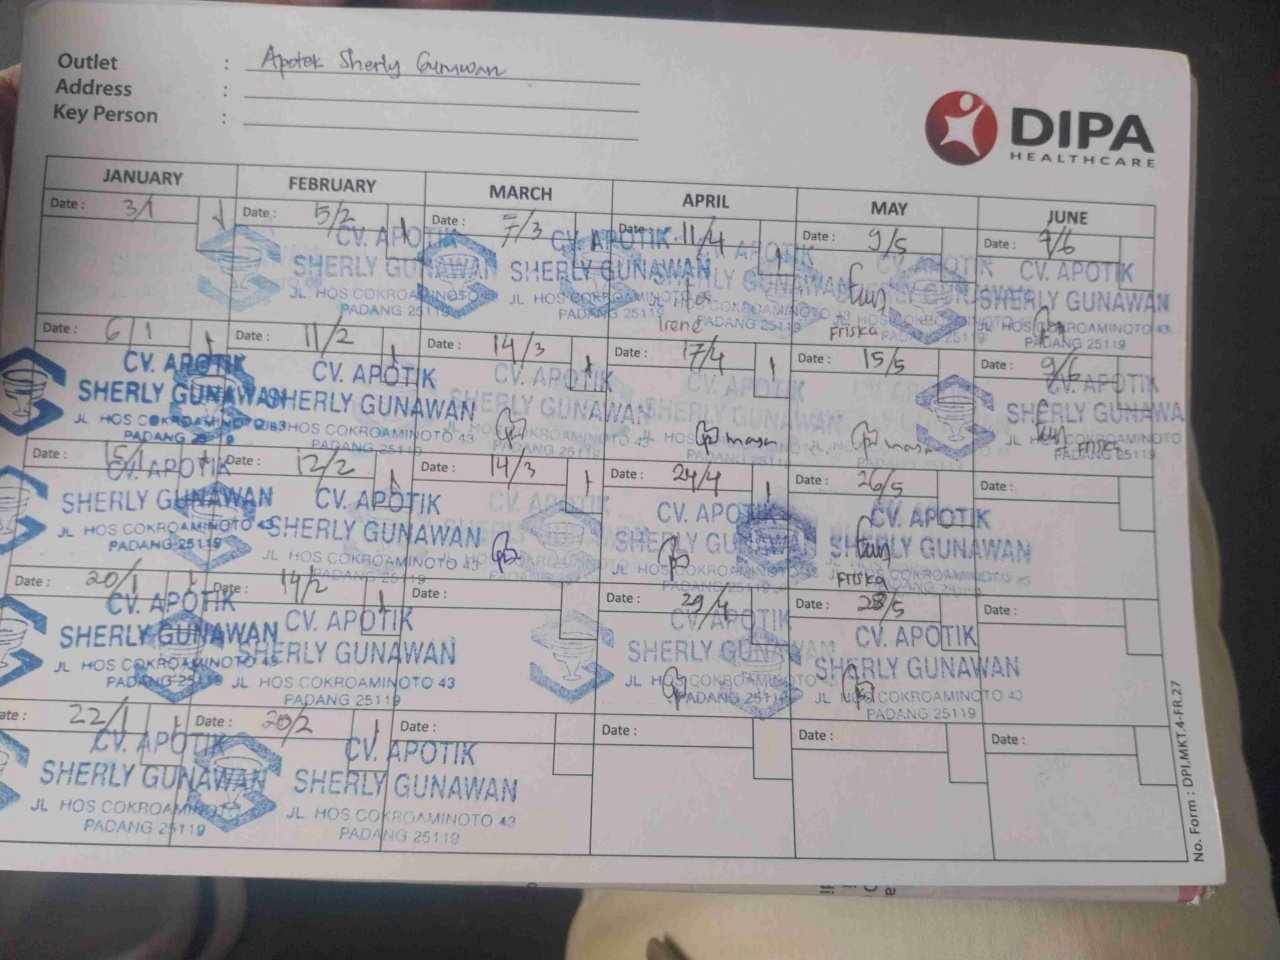 Outlet : Apotek Sherly Gunawan
Address :
Key Person :
DIPA
HEALTHCARE
JANUARY FEBRUARY MARCH APRIL MAY JUNE
Date : 3/1 Date : 5/2 Date : 7/3 Date : 11/4 Date : 9/5 Date : 7/6
CV. APOTIK CV. APOTIK APOTIK APOTIK CV. APOTIK
SHERLY GUNAWAN SHERLY GUNAWAN SHERLY GUNAWAN
JL HOS COKROAMINOTO JL HOS COKROAMINOTO JL HOS COKROAMINOTO 43
PADANG 25119 PADANG 25119 PADANG 25119 PADANG 25119
Irene Friska
Date : 6/1 Date : 11/2 Date : 14/3 Date : 17/4 Date : 15/5 Date : 9/6
CV. APOTIK CV. APOTIK CV. APOTIK CV. APOTIK
SHERLY GUNAWAN SHERLY GUNAWAN SHERLY GUNAWAN SHERLY GUNAWA
JL HOS COKROAMINOTO 43 HOS COKROAMINOTO 43 JL HOS COKROAMINOTO
PADANG 25119 PADANG 25119 PADANG 25119
maya maya Friska
Date : 15/1 Date : 12/2 Date : 14/3 Date : 24/4 Date : 26/5 Date :
CV. APOTIK CV. APOTIK CV. APOTIK CV. APOTIK
SHERLY GUNAWAN SHERLY GUNAWAN SHERLY GUNAWAN
JL HOS COKROAMINOTO 43 JL HOS COKROAMINOTO 43 JL HOS
PADANG 25119 PADANG 25119 PADANG 25119
Friska
Date : 20/1 Date : 14/2 Date : Date : 29/4 Date : 28/5 Date :
CV. APOTIK CV. APOTIK CV. APOTIK CV. APOTIK
SHERLY GUNAWAN SHERLY GUNAWAN SHERLY GUNAWAN SHERLY GUNAWAN
JL HOS COKROAMINOTO 43 JL HOS COKROAMINOTO 43 JL HOS COKROAMINOTO 43
PADANG 25119 PADANG 25119 PADANG 25119
ate : 22/1 Date : 20/2 Date : Date : Date : Date :
CV. APOTIK CV. APOTIK
SHERLY GUNAWAN SHERLY GUNAWAN
JL HOS COKROAMINOTO JL HOS COKROAMINOTO 43
PADANG 25119 PADANG 25119
No. Form : DPI.MKT.4-FR.27